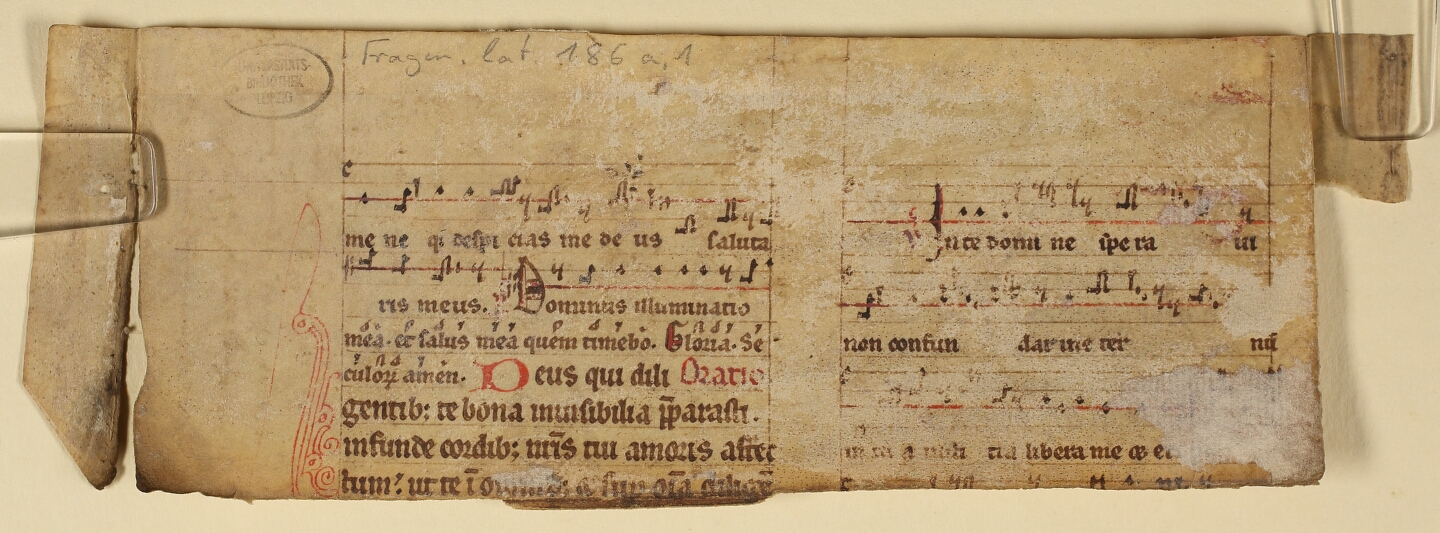 Fragm. lat. 186 a, 1
UNIVERSITÄTS-
BIBLIOTHEK
LEIPZIG
me ne qi despi cias me de us saluta
ris meus. Dominus illuminatio
mea. et salus mea quem timebo. Gloria. Se
culoꝝ amen. Deus qui dili Oratio
gentib: te bona inuisibilia p̄parasti.
infunde cordib; nr̄is tui amoris affec
tum: ut te ī
In te domi ne spe ra ui
non confun dar in e ter nū
in tu a iusti cia libera me